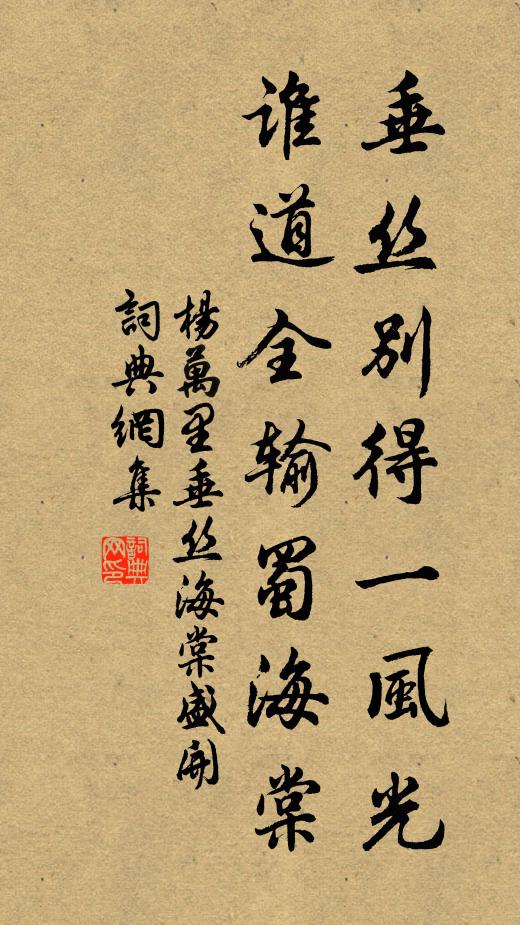 垂丝别得一風光
誰道全输蜀海棠
楊萬里垂丝海棠盛開
詞典網集
詞典
网印